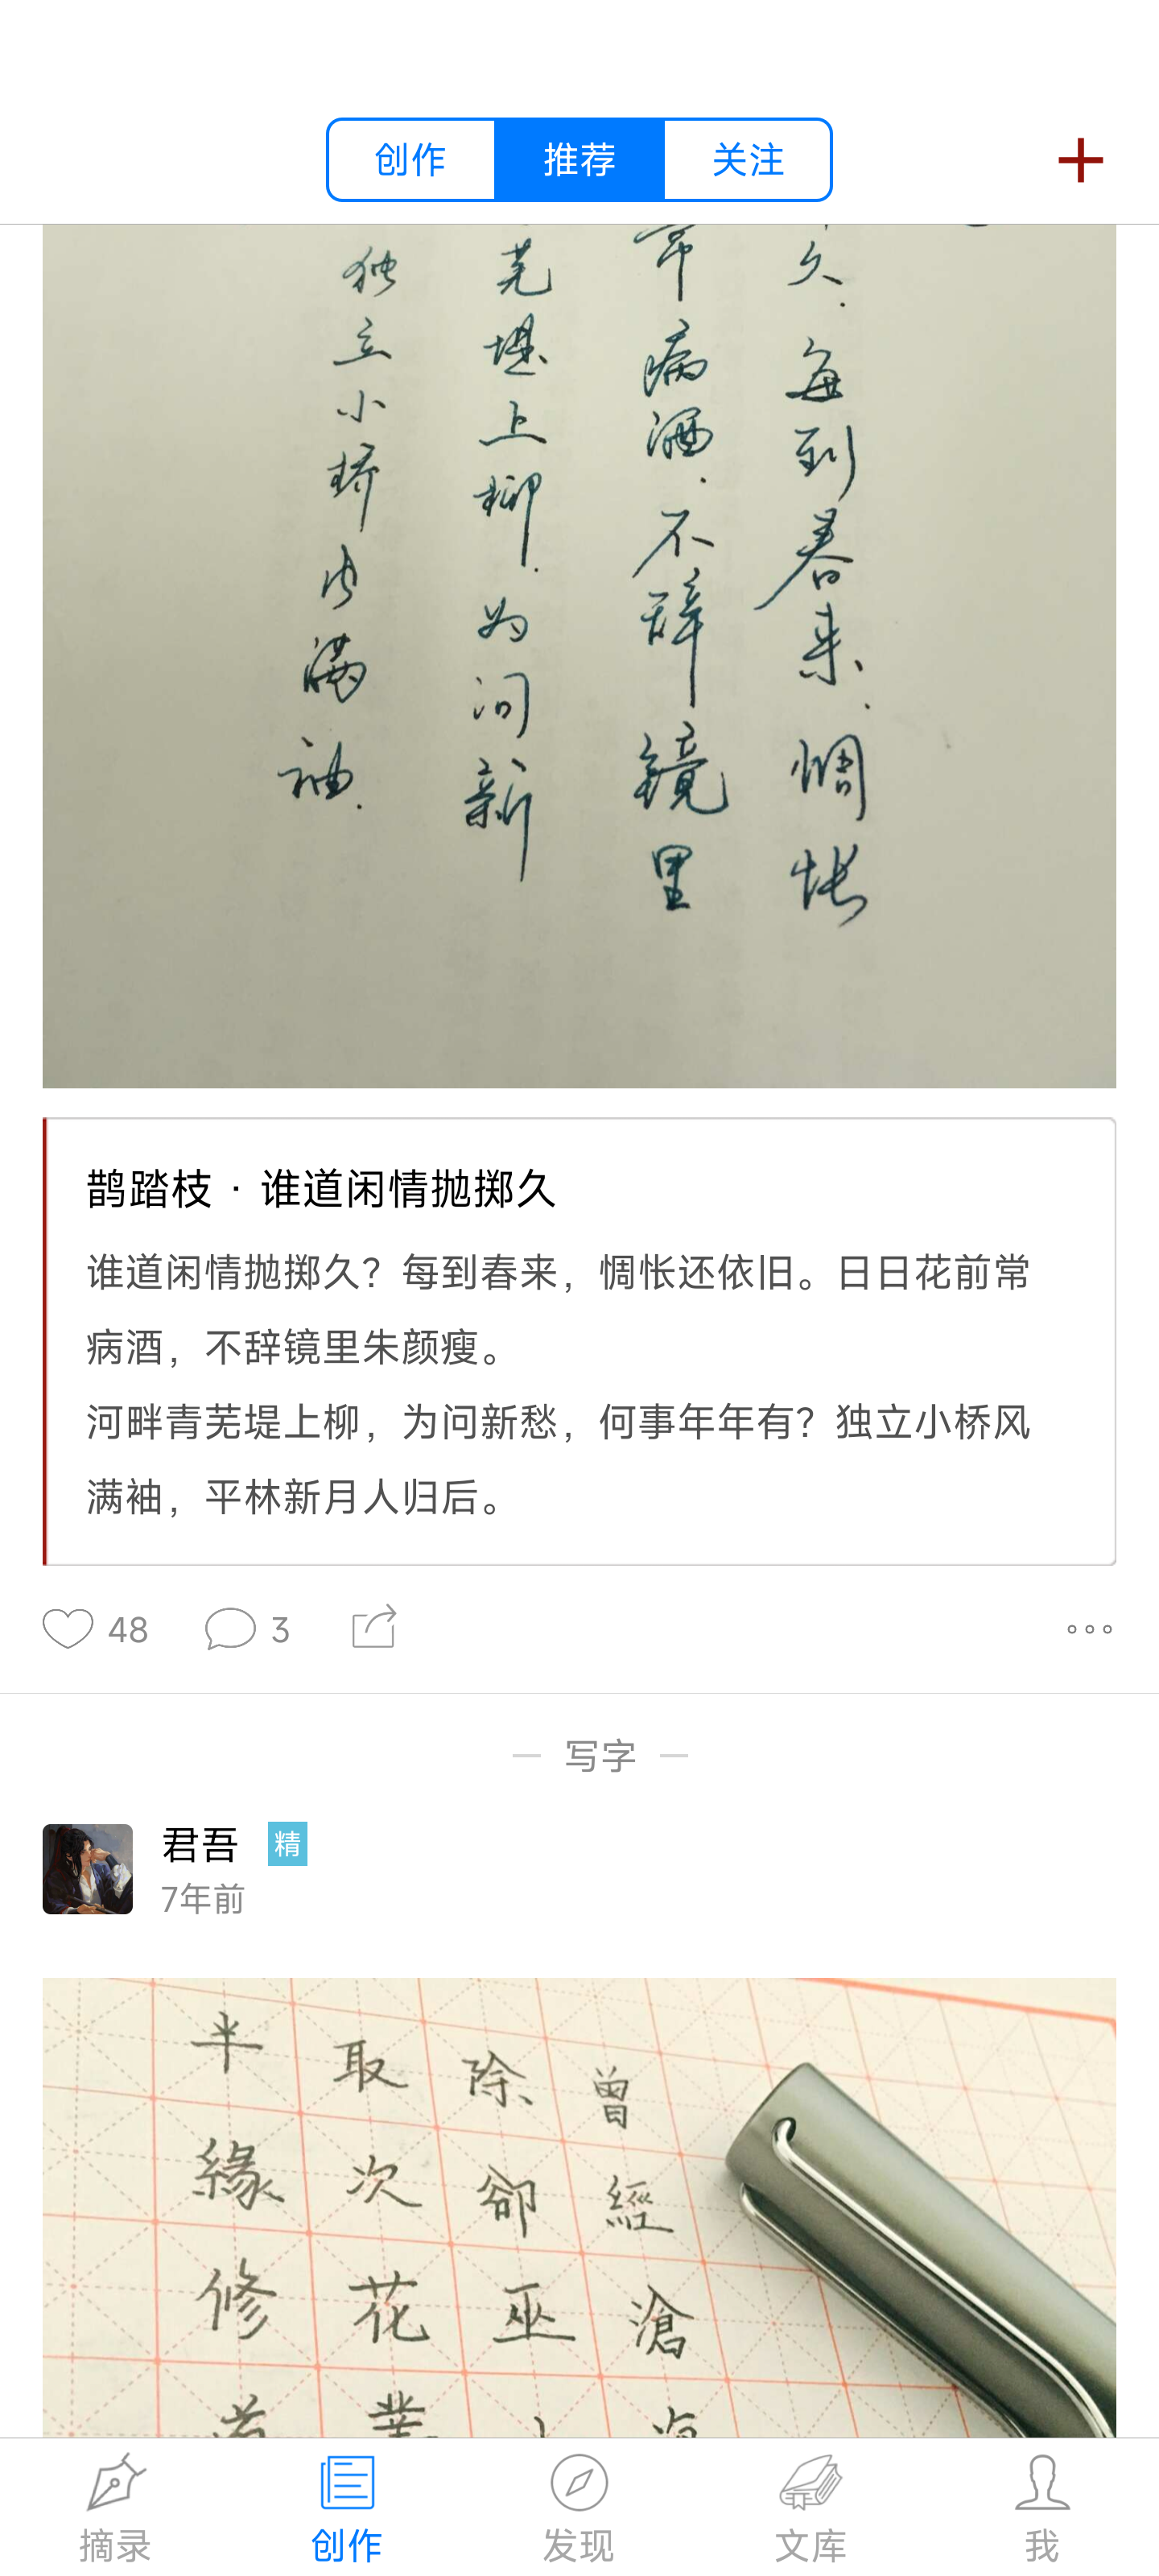 创作 推荐 关注
久.每到春来.惆怅
常病酒.不辞镜里
芜堤上柳.为问新
独立小桥风满袖.
鹊踏枝 · 谁道闲情抛掷久
谁道闲情抛掷久？每到春来，惆怅还依旧。日日花前常
病酒，不辞镜里朱颜瘦。
河畔青芜堤上柳，为问新愁，何事年年有？独立小桥风
满袖，平林新月人归后。
48 3
写字
君吾 精
7年前
曾經滄海
除卻巫
取次花叢
半緣修道
摘录 创作 发现 文库 我